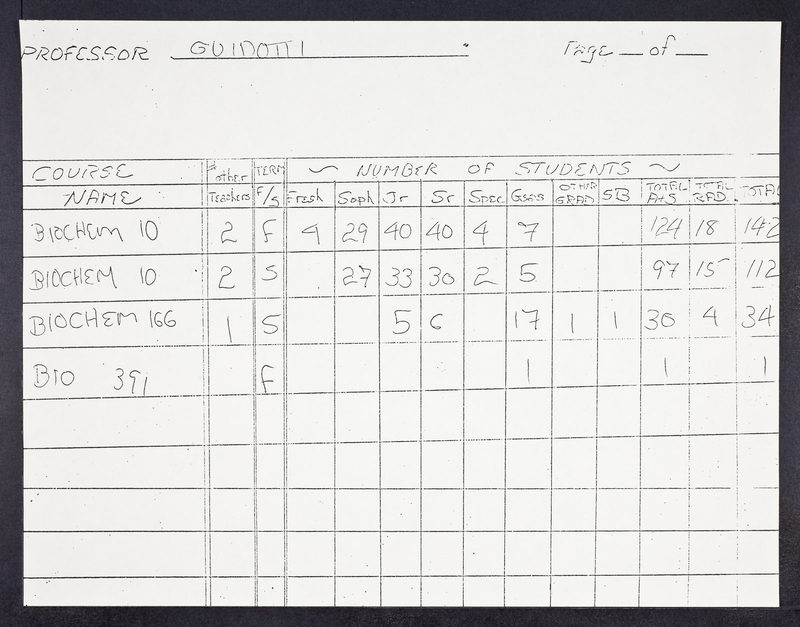 PROFESSOR GUIDOTTI Page __ of __
COURSE # other TERM ~ NUMBER OF STUDENTS ~
NAME Teachers F/S Fresh Soph Jr Sr Spec Gsas OTHER GRAD SB TOTAL A+S TOTAL RAD. TOTAL
BIOCHEM 10 2 F 4 29 40 40 4 7 124 18 142
BIOCHEM 10 2 S 27 33 30 2 5 97 15 112
BIOCHEM 166 1 S 5 6 17 1 1 30 4 34
BIO 391 F 1 1 1